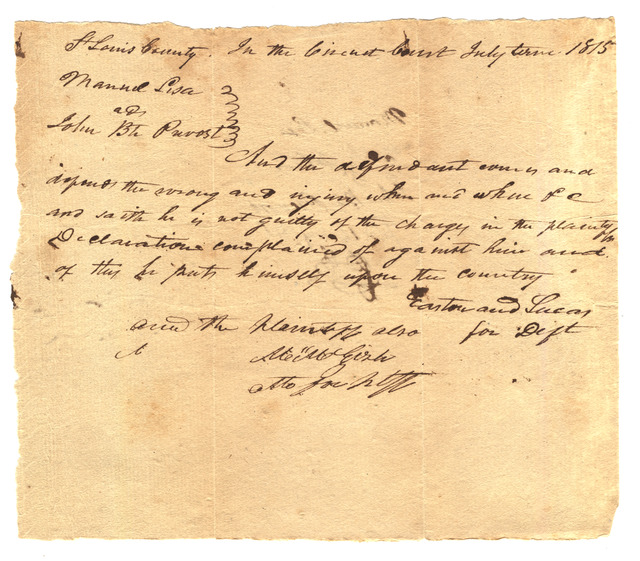 St Louis County. In the Circuit Court July term 1815
Manuel Lisa
ads
John Bte Provost
And the defendant comes and
defends the wrong and injury when and where &c
and saith he is not guilty of the charges in the plaintiffs
Declaration complained of against him and
of this he puts himself upon the country
Easton and Lucas
for Deft
and the plaintiff also
Atto for Plff